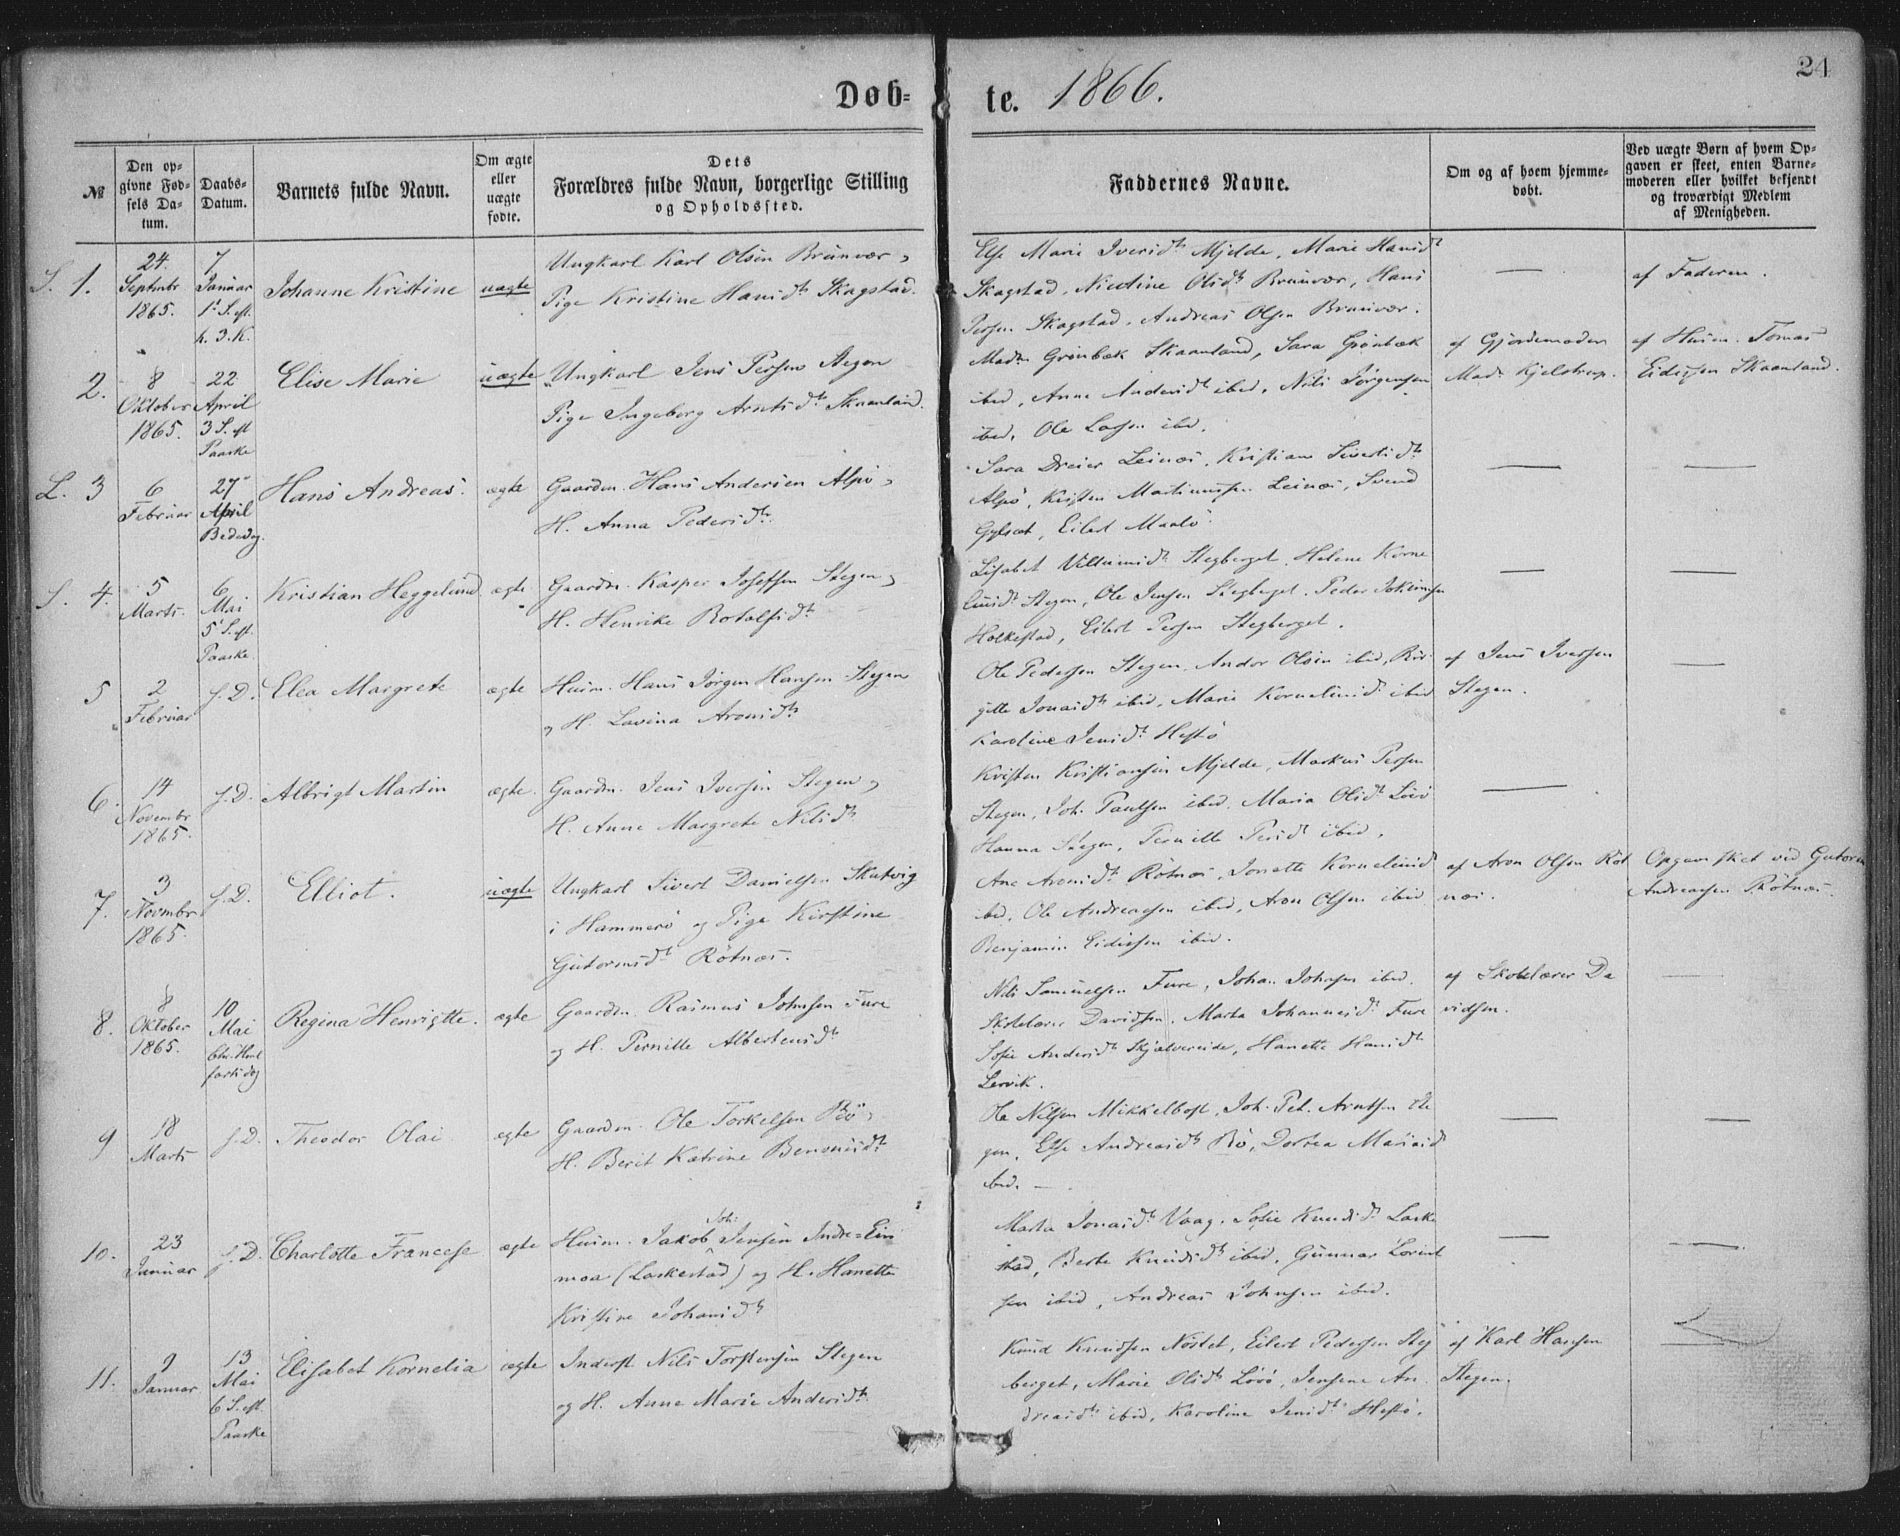 24
Døb- te. 1866.
№
Den op-
givne Fød-
sels Da-
tum.
Daabs-
Datum.
Barnets fulde Navn.
Om ægte
eller
uægte
fødte.
Dets
Forældres fulde Navn, borgerlige Stilling
og Opholdssted.
Faddernes Navne.
Om og af hvem hjemme-
døbt.
Ved uægte Børn af hvem Op-
gaven er skeet, enten Barne-
moderen eller hvilket bekjendt
og troværdigt Medlem
af Menigheden.
S. 1.
24.
Septmbr
1865.
7
Januar
1' S. eft.
h. 3. K.
Johanne Kristine
uægte
Ungkarl Karl Olsen Brunvær,
Pige Kristine Hansdtr Skagstad.
Else Marie Iversdtr Mjelde, Marie Hansdtr
Skagstad, Nicoline Olsdtr Brunvær, Hans
Persen Skagstad, Andreas Olsen Brunvær.
—
af Faderen.
2.
8
Oktober
1865.
22
April
3 S. eft
Paaske
Elise Marie
uægte
Ungkarl Jens Persen Stegen
Pige Ingeborg Arntsdtr Skaanland.
Madm Grønbæk Skaanland, Sara Grønbæk
ibid, Anne Andersdtr ibid, Nils Jørgensen
ibid, Ole Larsen ibid.
af Gjordemoder
Mad. Kjelstrup.
af Husm. Tomas
Eidissen Skaanland.
L. 3
6
Februar
27
April
Bededag.
Hans Andreas.
ægte
Gaardm. Hans Andersen Alpø,
H. Anna Pedersdtr
Sara Dreier Leinæs, Kristiane Sivertsdtr
Alpø, Kristen Martinussen Leinæs, Svend
Gylset, Eilert Maalø.
—
—
S. 4.
5
Marts.
6
Mai
5' S. eft.
Paaske.
Kristian Heggelund
ægte
Gaardm. Kasper Josefsen Stegen,
H. Henrike Rotalfsdtr
Lisabet Villumsdtr Stegberget, Helene Korne
liusdtr Stegen, Ole Jensen Stegberget, Peder Jokumsen
Holkestad, Eilert Persen Stegberget.
—
—
5
2
Februar
s. D.
Elea Margrete
ægte
Husm. Hans Jørgen Hansen Stegen
og H. Lavina Aronsdtr
Ole Pedersen Stegen, Andor Olsen ibid, Bir-
gitte Jonasdtr ibid, Marie Korneliusdtr ibid
Karoline Jensdtr Hestø
af Jens Iversen
Stegen.
—
6.
14
Novembr
1865.
s. D.
Albrigt Martin
ægte.
Gaardm. Jens Iversen Stegen,
H. Anne Margrete Nilsdtr
Kristen Kristiansen Mjelde, Markus Persen
Stegen, Joh. Paulsen ibid, Maria Olsdtr Løvø
Hanna Stegen, Pernille Persdtr ibid.
—
7.
3
Novmbr
1865.
s. D.
Elliot.
uægte
Ungkarl Sivert Danielsen Skutvig
i Hammerø og Pige Kirstine
Gutormsdtr Røtnæs.
Ane Aronsdtr Røtnæs, Jonette Korneliusdtr
ibid, Ole Andreassen ibid, Aron Olsen ibid
Benjamin Eidissen ibid.
af Aron Olsen Røt
næs.
Opgave sket ved Gutorm
Andreassen Røtnæs.
8.
8
Oktober
1865.
10
Mai
Chr. Himl
fartsdag
Regina Henriette.
ægte
Gaardm. Rasmus Johnsen Fure
og H. Pernille Albertsensdtr
Nils Samuelsen Fure, Johan Johnsen ibid.
Skolelærer Davidsen, Marta Johannesdtr Fure
Sofie Andersdtr Skjelvereide, Hanette Hansdtr
Lervik.
af Skolelærer Da
vidsen.
—
9
18
Marts
s. D.
Theodor Olai
ægte
Gaardm. Ole Torkelsen Bø,
H. Berit Katrine Bensonsdtr
Ole Nilsen Mikkelbost, Joh. Pet. Arntsen Ste
gen, Else Andreasdtr Bø, Dortea Mariasd
ibid. —
—
—
10.
23
Januar
s. D.
Charlotte Francese
ægte
Husm. Jakob Joh: Jensen Indre-Ein
moa (Laskestad) og H. Hanette
Kristine Johansdtr
Marta Jonasdtr Vaag, Sofie Knudsdtr Laske
stad, Berte Knudsdtr ibid, Gunnar Lorent
sen ibid, Andreas Johnsen ibid.
—
—
11.
9
Januar
13
Mai
6 S. eft.
Paaske
Elisabet Kornelia
ægte
Inderst Nils Torstensen Stegen
og H. Anne Marie Andersdtr
Knud Knudsen Nostet, Eilert Pedersen Steg
berget, Marie Olsdtr Løvø, Jensine An-
dreasdtr ibid, Karoline Jensdtr Hestø.
af Karl Hansen
Stegen.
—